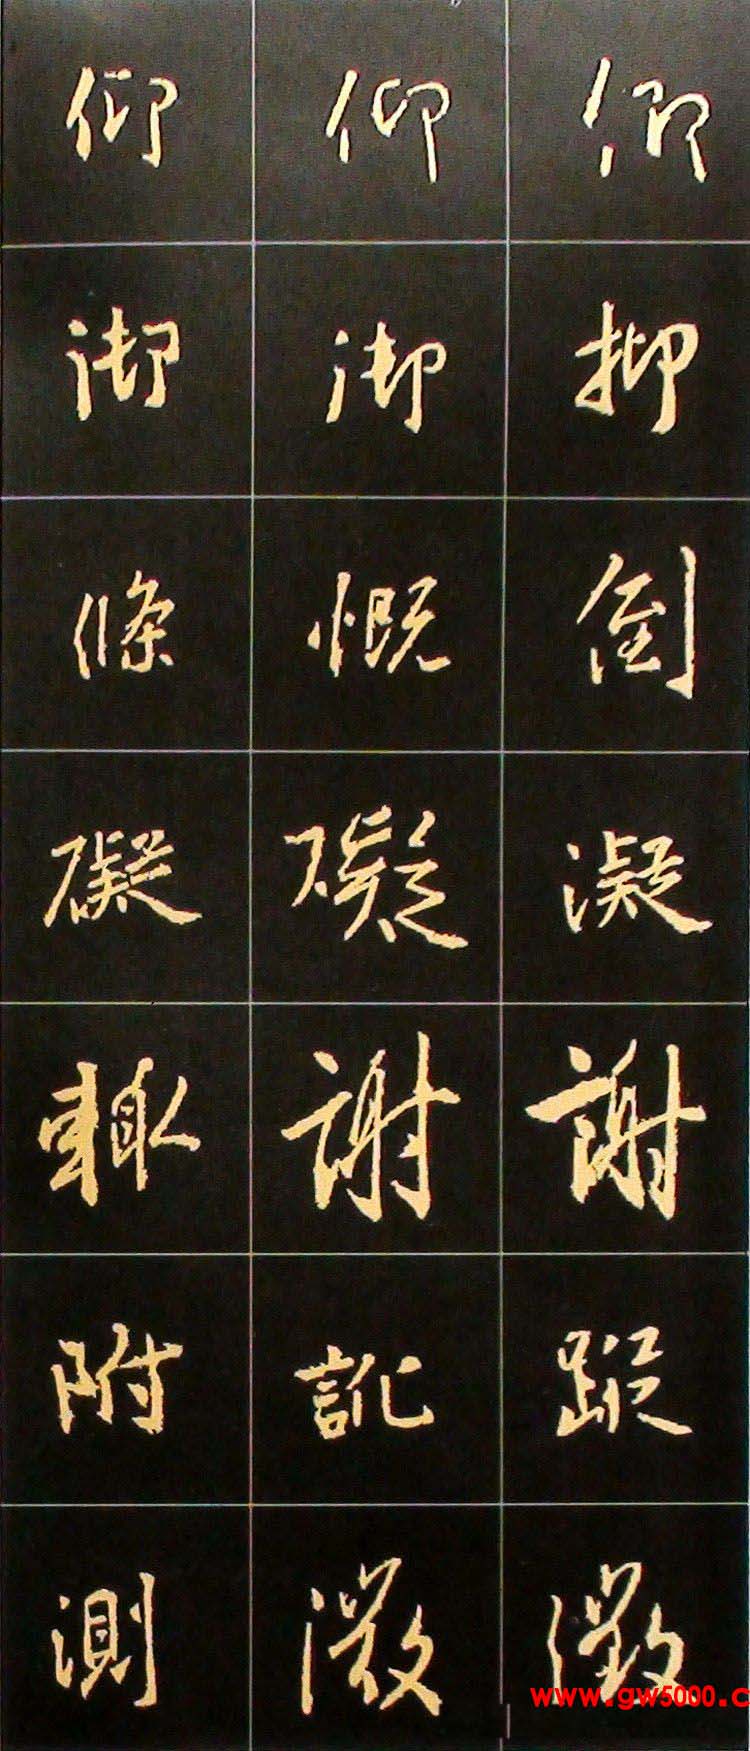 仰 仰 仰
御 御 抑
條 慨 倒
礙 礙 凝
輙 謝 謝
附 訛 蹤
測 微 徵
www.gw5000.c